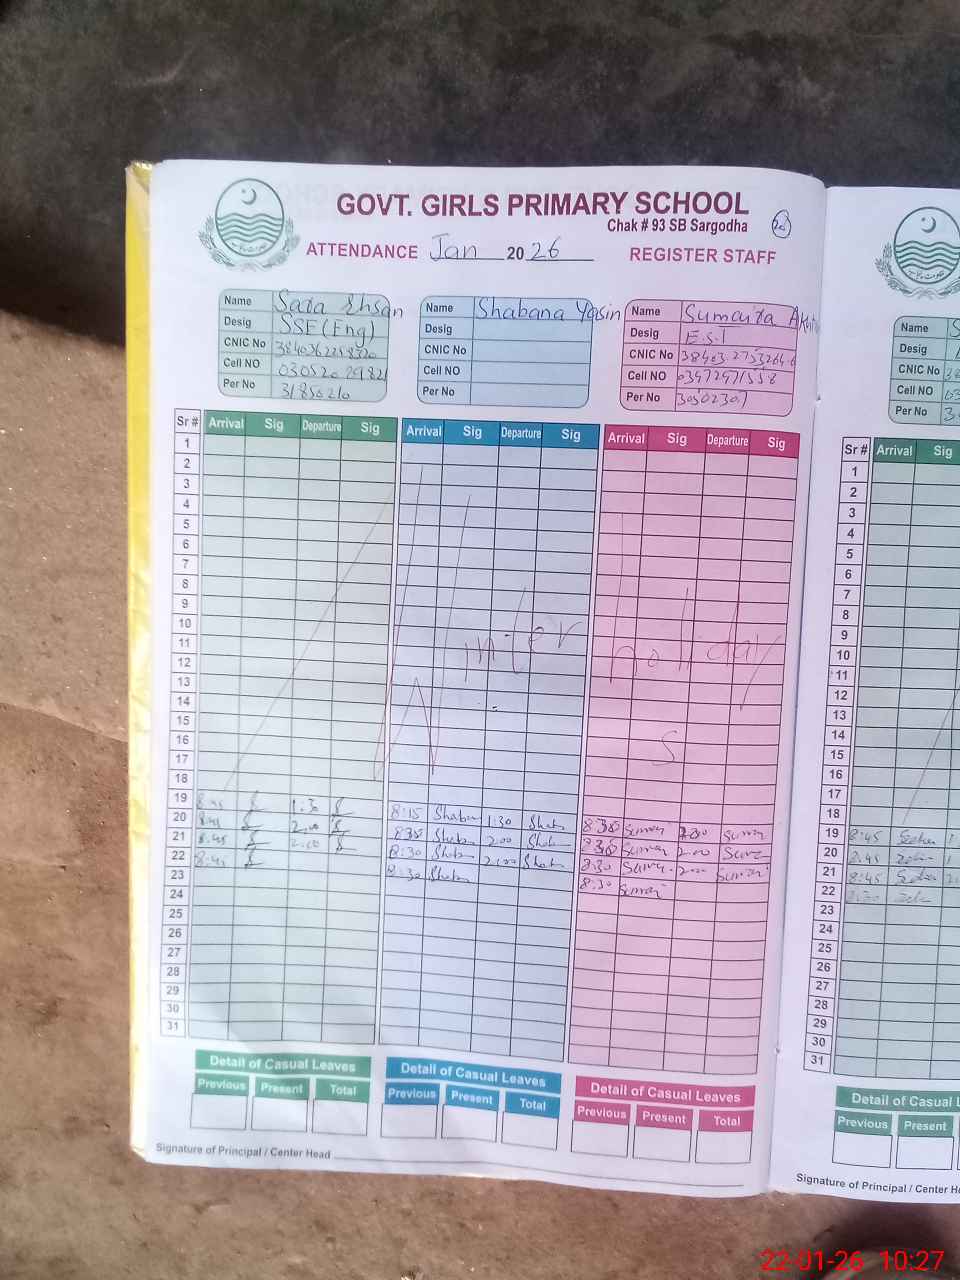 GOVT. GIRLS PRIMARY SCHOOL
Chak # 93 SB Sargodha
ATTENDANCE Jan 2026 REGISTER STAFF
Name Sada Ehsan
Desig SSE (Eng)
CNIC No
Cell NO
Per No 31856210
Name Shabana Yasin
Desig
CNIC No
Cell NO
Per No
Name Sumaira
Desig E.S.T
CNIC No
Cell NO 03472971558
Per No
Sr # Arrival Sig Departure Sig Arrival Sig Departure Sig Arrival Sig Departure Sig
1
2
3
4
5
6
7
8
9
10
11
12
13
14
15
16
17
18
Winter holidays
19 8:45 1:30 8:15 Shaban 1:30 Shab 8:30 Sumai 2:00 Sumai
20 8:45 2:00 8:30 Shab 2:00 Shab 8:30 Sumai 2:00 Sumai
21 8:45 2:00 8:30 Shab 2:00 Shab 8:30 Sumai 2:00 Sumai
22 8:45 8:30 Shab 8:30 Sumai
23
24
25
26
27
28
29
30
31
Detail of Casual Leaves
Previous Present Total
Detail of Casual Leaves
Previous Present Total
Detail of Casual Leaves
Previous Present Total
Signature of Principal / Center Head
Name
Desig
CNIC No
Cell NO
Per No
Sr # Arrival Sig
1
2
3
4
5
6
7
8
9
10
11
12
13
14
15
16
17
18
19 8:45
20 8:45
21 8:45
22 8:30
23
24
25
26
27
28
29
30
31
Detail of Casual
Previous Present
Signature of Principal / Center
22-01-26 10:27